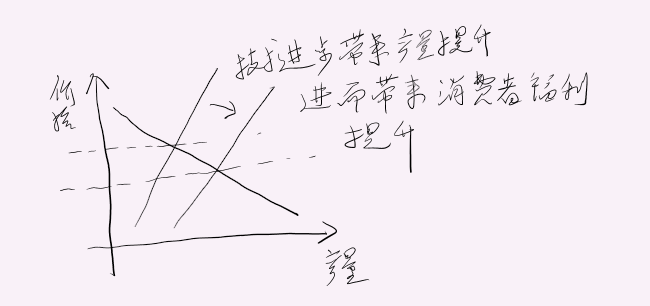 技术进步带来产量提升
进而带来消费者福利
提升
价格
产量